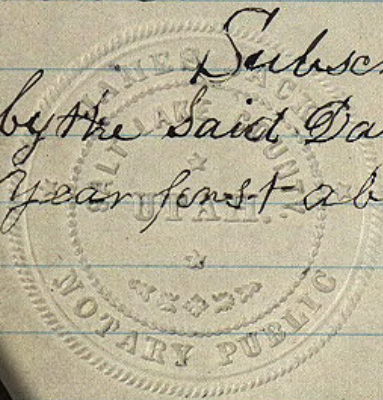 Subsc
by the Said Da
Year first ab
JAMES JACK
SALT LAKE COUNTY
UTAH.
NOTARY PUBLIC